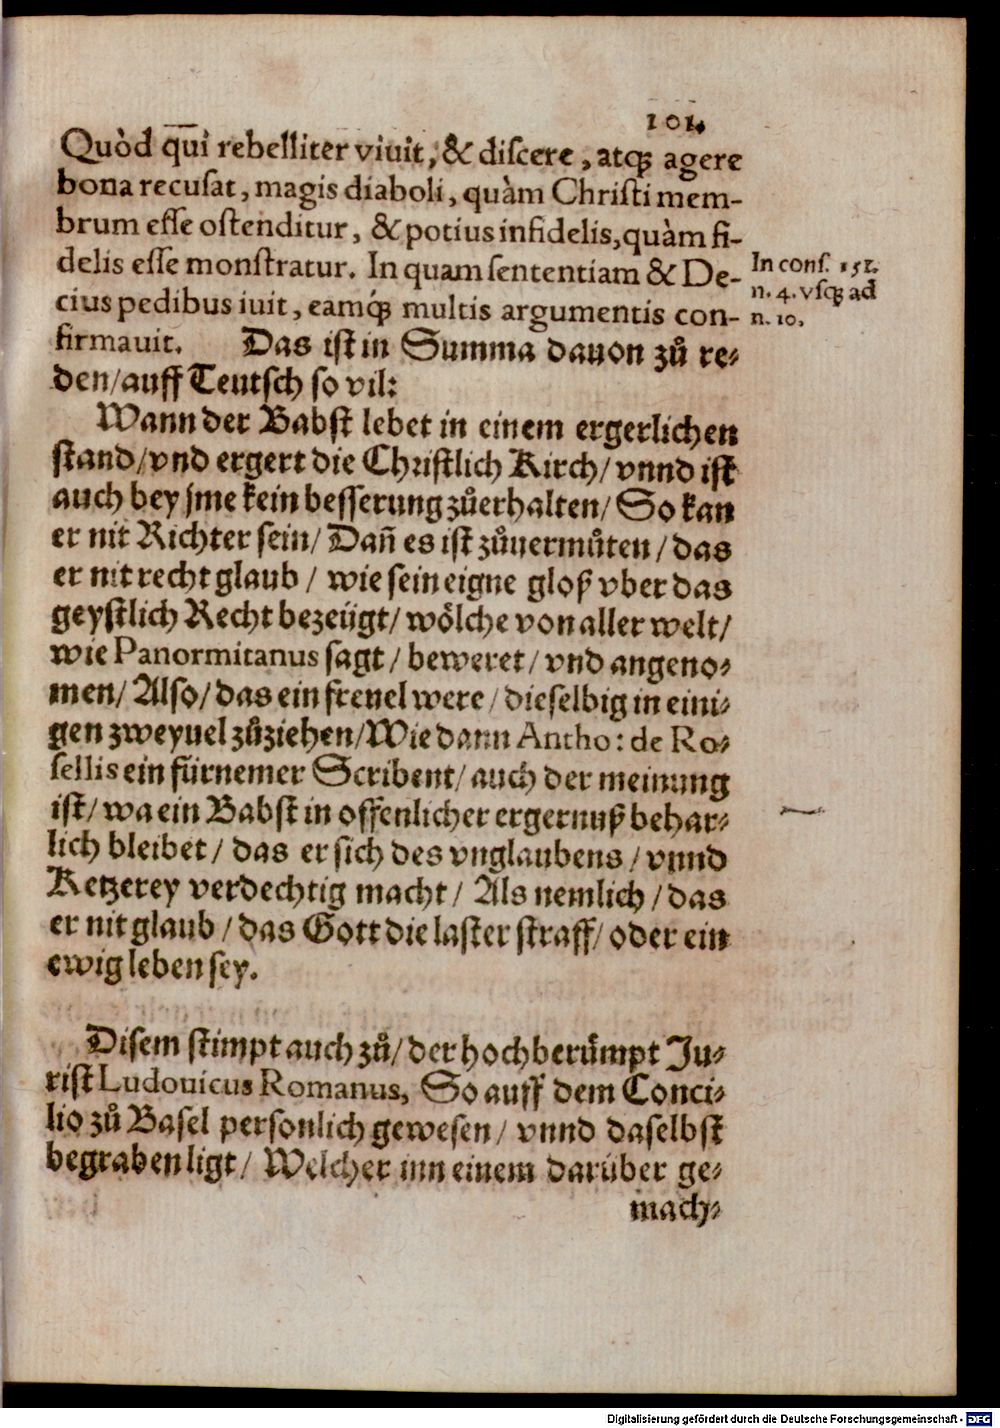 101.
Quòd qui rebelliter viuit, & discere, atq; agere
bona recusat, magis diaboli, quàm Christi mem-
brum esse ostenditur, & potius infidelis, quàm fi-
delis esse monstratur. In quam sententiam & De-
cius pedibus iuit, eamq́; multis argumentis con-
firmauit. Das ist in Summa dauon zů re-
den/auff Teutsch so vil:
In cons. 151.
n. 4. vsq; ad
n. 10.
Wann der Babst lebet in einem ergerlichen
stand/vnd ergert die Christlich Kirch/vnnd ist
auch bey jme kein besserung zůerhalten/So kan
er nit Richter sein/Dañ es ist zůuermůten/das
er nit recht glaub/wie sein eigne gloß vber das
geystlich Recht bezeügt/wölche von aller welt/
wie Panormitanus sagt/beweret/vnd angeno-
men/Also/das ein freuel were/dieselbig in eini-
gen zweyuel zůziehen/Wie dann Antho: de Ro-
sellis ein fürnemer Scribent/auch der meinung
ist/wa ein Babst in offenlicher ergernuß behar-
lich bleibet/das er sich des vnglaubens/vnnd
Ketzerey verdechtig macht/Als nemlich/das
er nit glaub/das Gott die laster straff/oder ein
ewig leben sey.
Disem stimpt auch zů/der hochberůmpt Ju-
rist Ludouicus Romanus, So auff dem Conci-
lio zů Basel personlich gewesen/vnnd daselbst
begraben ligt/Welcher inn einem darüber ge-
mach-
Digitalisierung gefördert durch die Deutsche Forschungsgemeinschaft - DFG